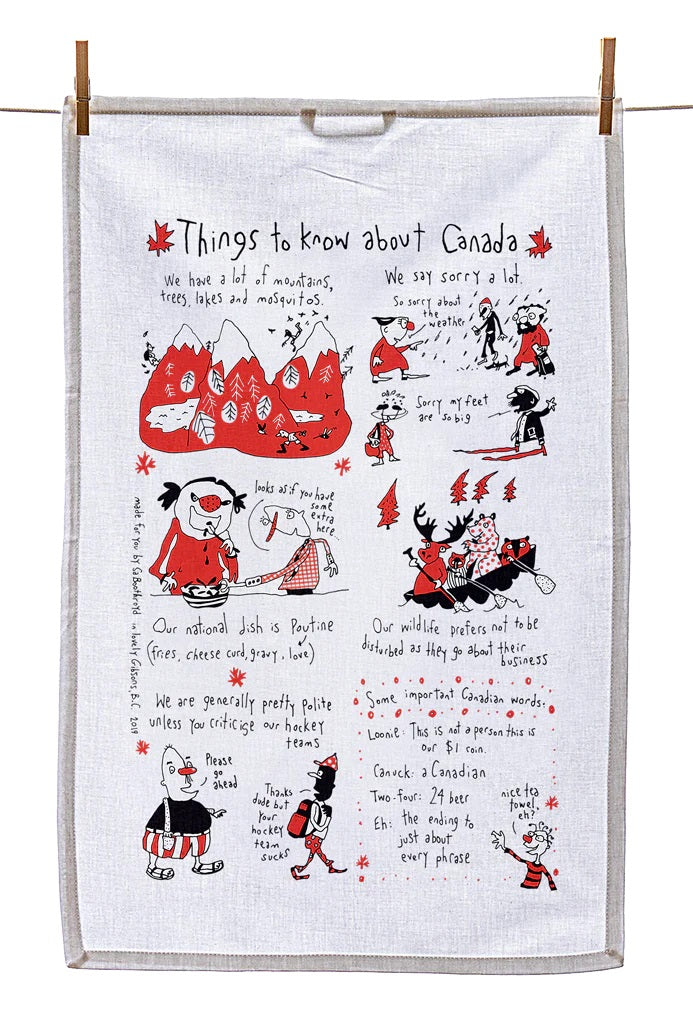 Things to know about Canada
We have a lot of mountains,
trees, lakes and mosquitos.
We say sorry a lot.
So sorry about
the
weather
Sorry my feet
are so big
looks as if you have
some
extra
here...
Our national dish is Poutine
(fries, cheese curd, gravy, love)
Our wildlife prefers not to be
disturbed as they go about their
business
made for you by Sa Boothroyd in lovely Gibsons, B.C. 2019
We are generally pretty polite
unless you criticise our hockey
teams
Please
go
ahead
Thanks
dude but
your
hockey
team
sucks
Some important Canadian words:
Loonie: This is not a person this is
our $1 coin.
Canuck: a Canadian
Two-four: 24 beer
Eh: the ending to
just about
every phrase
nice tea
towel,
eh?